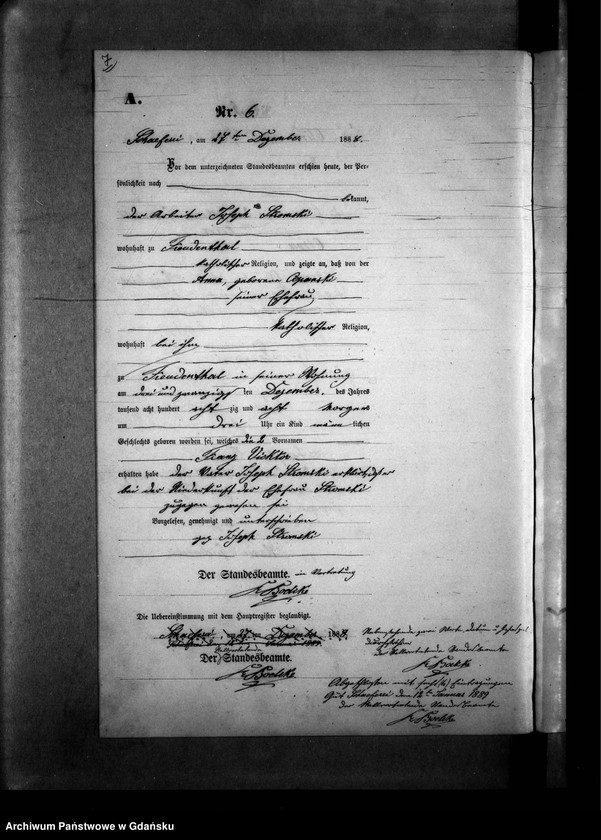 7
A.
Nr. 6.
Schaeferei, am 27ten Dezember 1888.
Vor dem unterzeichneten Standesbeamten erschien heute, der Per-
sönlichkeit nach
bekannt,
der Arbeiter Joseph Skomski
wohnhaft zu Freudenthal
katholischer Religion, und zeigte an, daß von der
Anna, geborene
seiner Ehefrau
katholischer Religion,
wohnhaft bei ihm
zu Freudenthal in seiner Wohnung
am drei und zwanzigs ten Dezember, des Jahres
tausend acht hundert acht zig und acht Morgens
um drei Uhr ein Kind männ lichen
Geschlechts geboren worden sei, welches die 2 Vornamen
Franz Vicktor
erhalten habe der Vater Joseph Skomski erklärt, daß er
bei der Niederkunft der Ehefrau Skomski
zugegen gewesen sei
Vorgelesen, genehmigt und unterschrieben
gez Joseph Skomski
Der Standesbeamte. in Vertretung
Die Uebereinstimmung mit dem Hauptregister beglaubigt.
Schaeferei, am 27. Dezember 1888.
Der Standesbeamte.
der stellvertretende Standesbeamte
Abgeschlossen mit sechs (6) Eintragungen
Gut Schaeferei den 12ten Januar 1889
der stellvertretende Standesbeamte
Archiwum Państwowe w Gdańsku